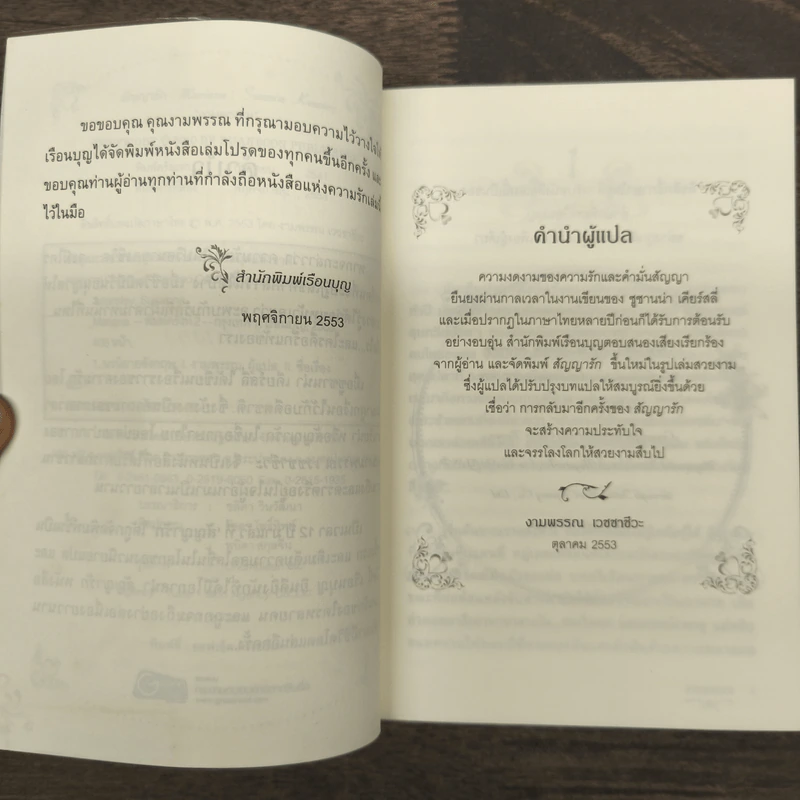 ขอขอบคุณ คุณงามพรรณ ที่กรุณามอบความไว้วางใจให้
เรือนบุญได้จัดพิมพ์หนังสือเล่มโปรดของทุกคนขึ้นอีกครั้ง และ
ขอบคุณท่านผู้อ่านทุกท่านที่กำลังถือหนังสือแห่งความรักเล่มนี้
ไว้ในมือ
สำนักพิมพ์เรือนบุญ
พฤศจิกายน 2553
คำนำผู้แปล
ความงดงามของความรักและคำมั่นสัญญา
ยืนยงผ่านกาลเวลาในงานเขียนของ ซูซานน่า เคียร์สลี่
และเมื่อปรากฏในภาษาไทยหลายปีก่อนก็ได้รับการต้อนรับ
อย่างอบอุ่น สำนักพิมพ์เรือนบุญตอบสนองเสียงเรียกร้อง
จากผู้อ่าน และจัดพิมพ์ สัญญารัก ขึ้นใหม่ในรูปเล่มสวยงาม
ซึ่งผู้แปลได้ปรับปรุงบทแปลให้สมบูรณ์ยิ่งขึ้นด้วย
เชื่อว่า การกลับมาอีกครั้งของ สัญญารัก
จะสร้างความประทับใจ
และจรรโลงโลกให้สวยงามสืบไป
งามพรรณ เวชชาชีวะ
ตุลาคม 2553